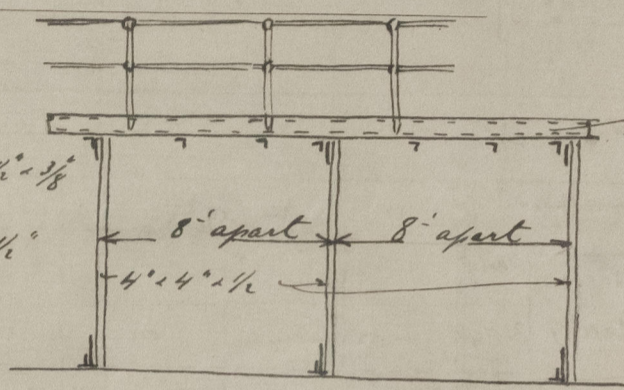 ½" × 3/8"
½"
8' apart 8' apart
4" × 4" × ½